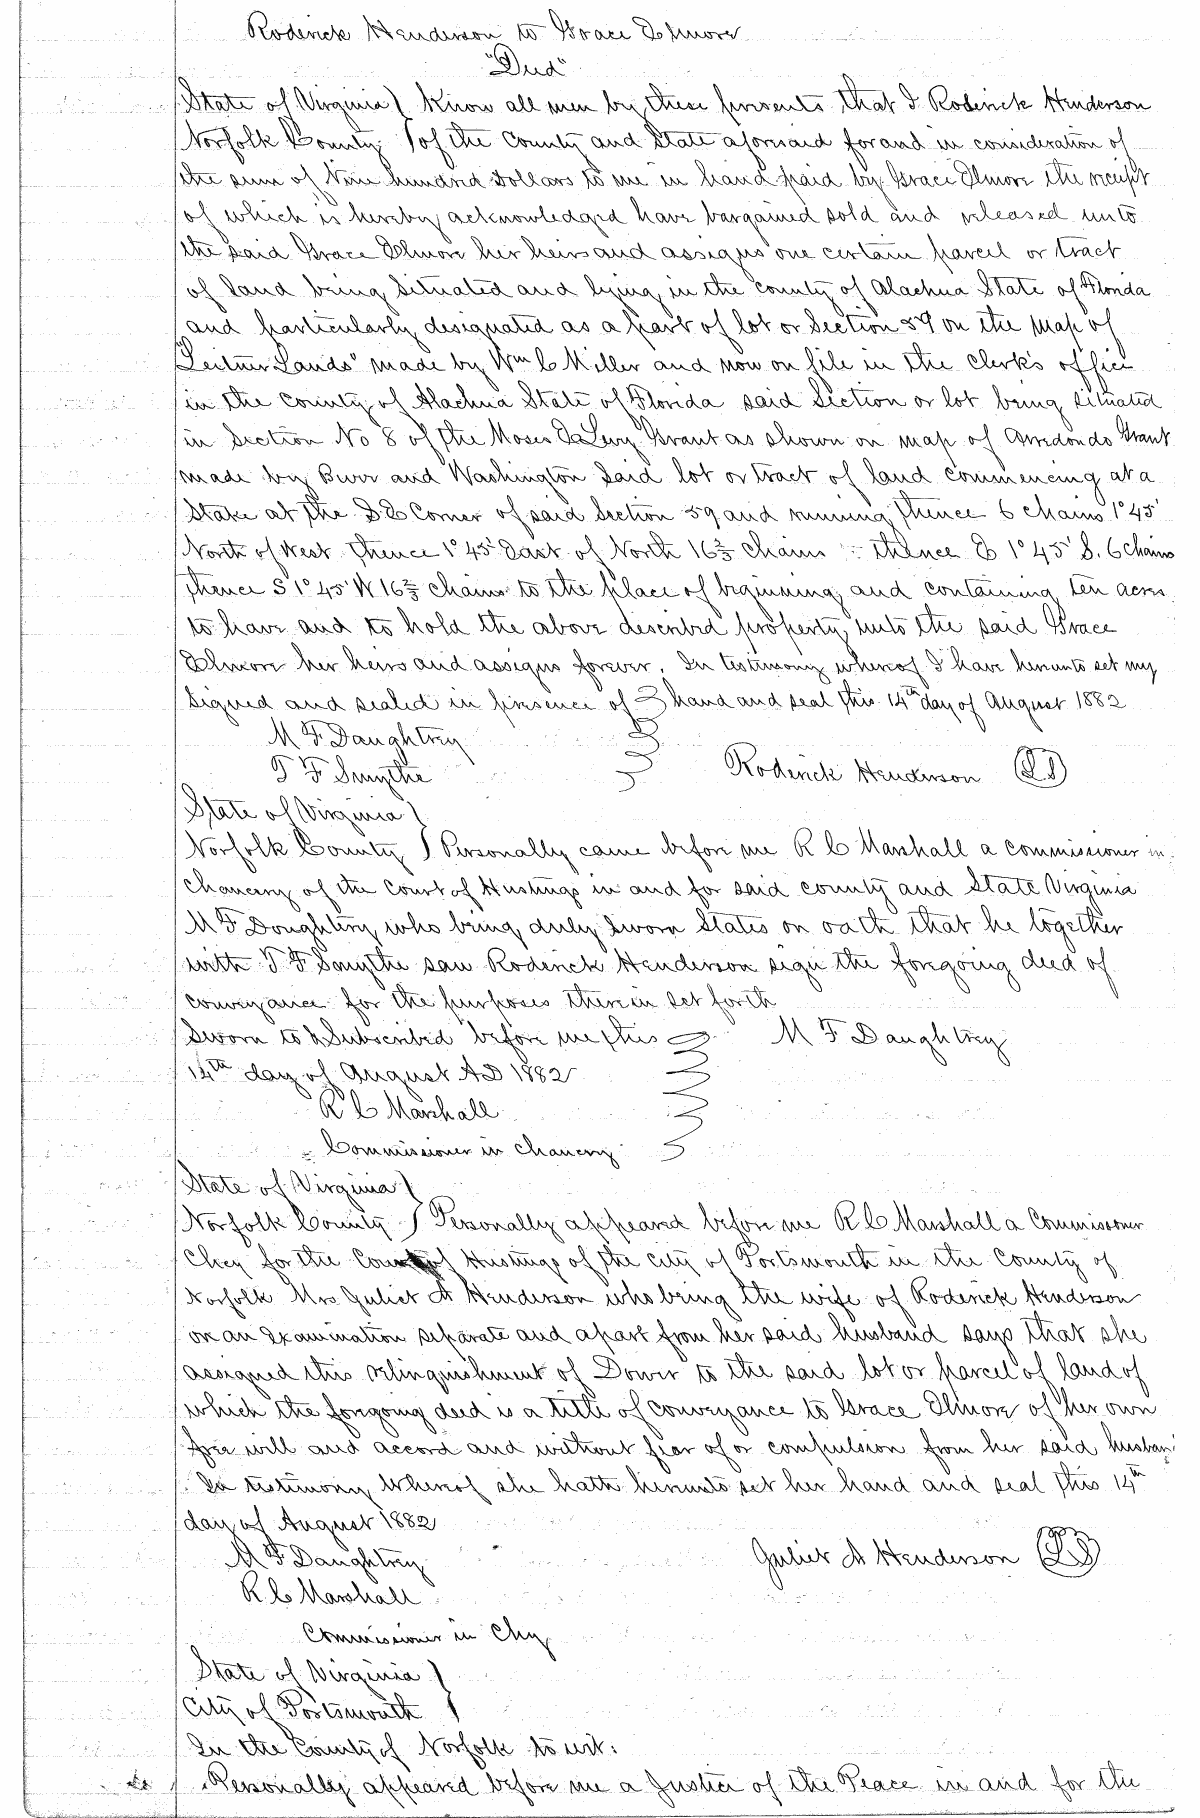 Roderick Henderson to Grace Elmore
"Deed"
State of Virginia } Know all men by these presents that I Roderick Henderson
Norfolk County } of the County and State aforesaid for and in consideration of
the sum of Nine hundred Dollars to me in hand paid by Grace Elmore the receipt
of which is hereby acknowledged have bargained sold and released unto
the said Grace Elmore her heirs and assigns one certain parcel or tract
of land being situated and lying in the county of Alachua State of Florida
and particularly designated as a part of lot or Section 59 on the map of
"Leitner Lands" made by Wm C Miller and now on file in the Clerk's office
in the county of Alachua State of Florida said Section or lot being situated
in Section No 8 of the Moses E Levy Grant as shown on map of Arredondo Grant
made by Burr and Washington Said lot or tract of land commencing at a
Stake at the S E Corner of said Section 59 and running thence 6 chains 1° 45'
North of West thence 1° 45' East of North 16 2/3 chains thence E 1° 45' S. 6 chains
thence S 1° 45' W 16 2/3 chains to the place of beginning and containing ten acres
to have and to hold the above described property unto the said Grace
Elmore her heirs and assigns forever. In testimony whereof I have hereunto set my
Signed and sealed in presence of } hand and seal this 14th day of August 1882
M F Daughtrey
T F Smythe Roderick Henderson LS
State of Virginia }
Norfolk County } Personally came before me R C Marshall a commissioner in
Chancery of the Court of Hustings in and for said county and State Virginia
M F Doughtrey who being duly sworn States on oath that he together
with T F Smythe saw Roderick Henderson sign the foregoing deed of
conveyance for the purposes therein set forth
Sworn to & Subscribed before me this M F Daughtrey
14th day of August AD 1882
R C Marshall
Commissioner in Chancery
State of Virginia }
Norfolk County } Personally appeared before me R C Marshall a Commissioner
Chcy for the Court of Hustings of the city of Portsmouth in the County of
Norfolk Mrs Juliet A Henderson who being the wife of Roderick Henderson
on an Examination separate and apart from her said husband says that she
assigned this relinquishment of Dower to the said lot or parcel of land of
which the foregoing deed is a title of conveyance to Grace Elmore of her own
free will and accord and without fear of or compulsion from her said husban
In testimony Whereof she hath hereunto set her hand and seal this 14th
day of August 1882
M F Daughtrey Juliet A Henderson LS
R C Marshall
Commissioner in Chy
State of Virginia }
City of Portsmouth }
In the County of Norfolk to wit:
Personally appeared before me a Justice of the Peace in and for the